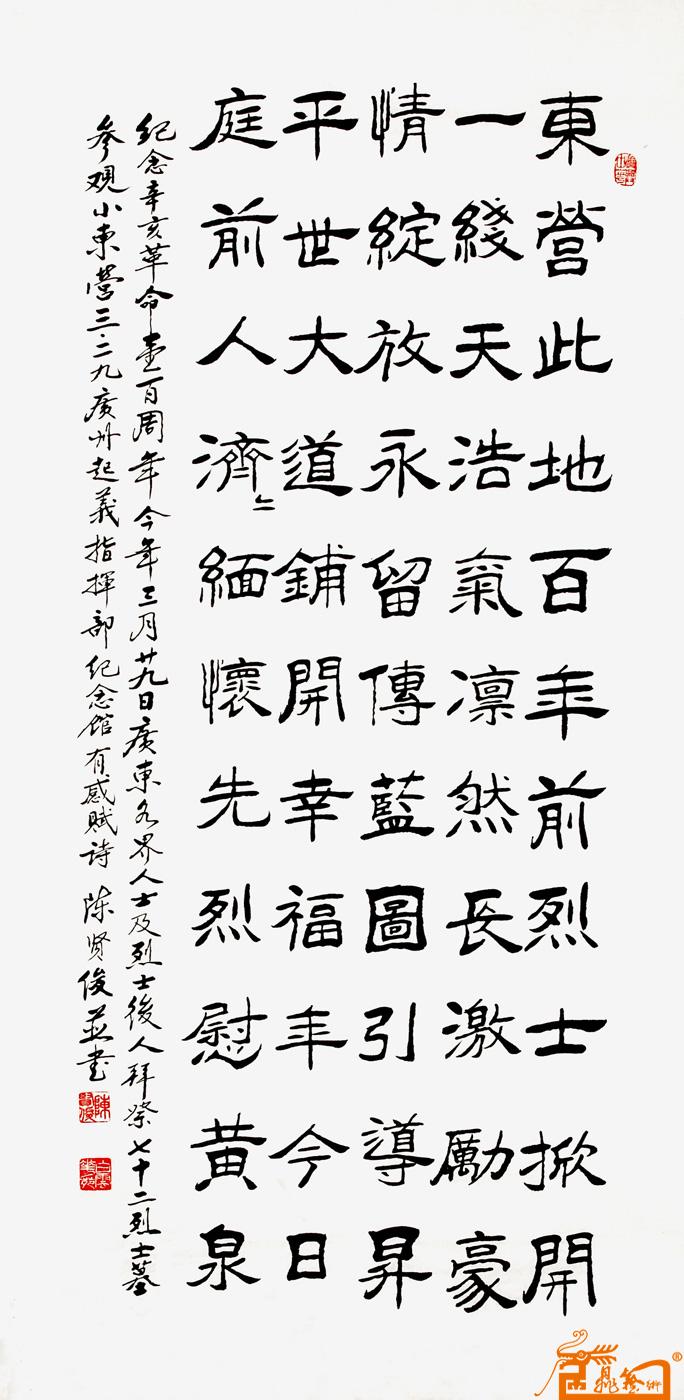 東營此地百年前烈士掀開
一綫天浩氣凛然長激厲豪
情綻放永留傳藍圖引導昇
平世大道鋪開幸福年今日
庭前人濟二緬懷先烈慰黄泉
纪念辛亥革命壹百周年今年三月廿九日廣東各界人士及烈士後人拜祭七十二烈士墓
參观小東營三·二九廣州起義指揮部纪念馆有感赋诗 陈贤俊并书